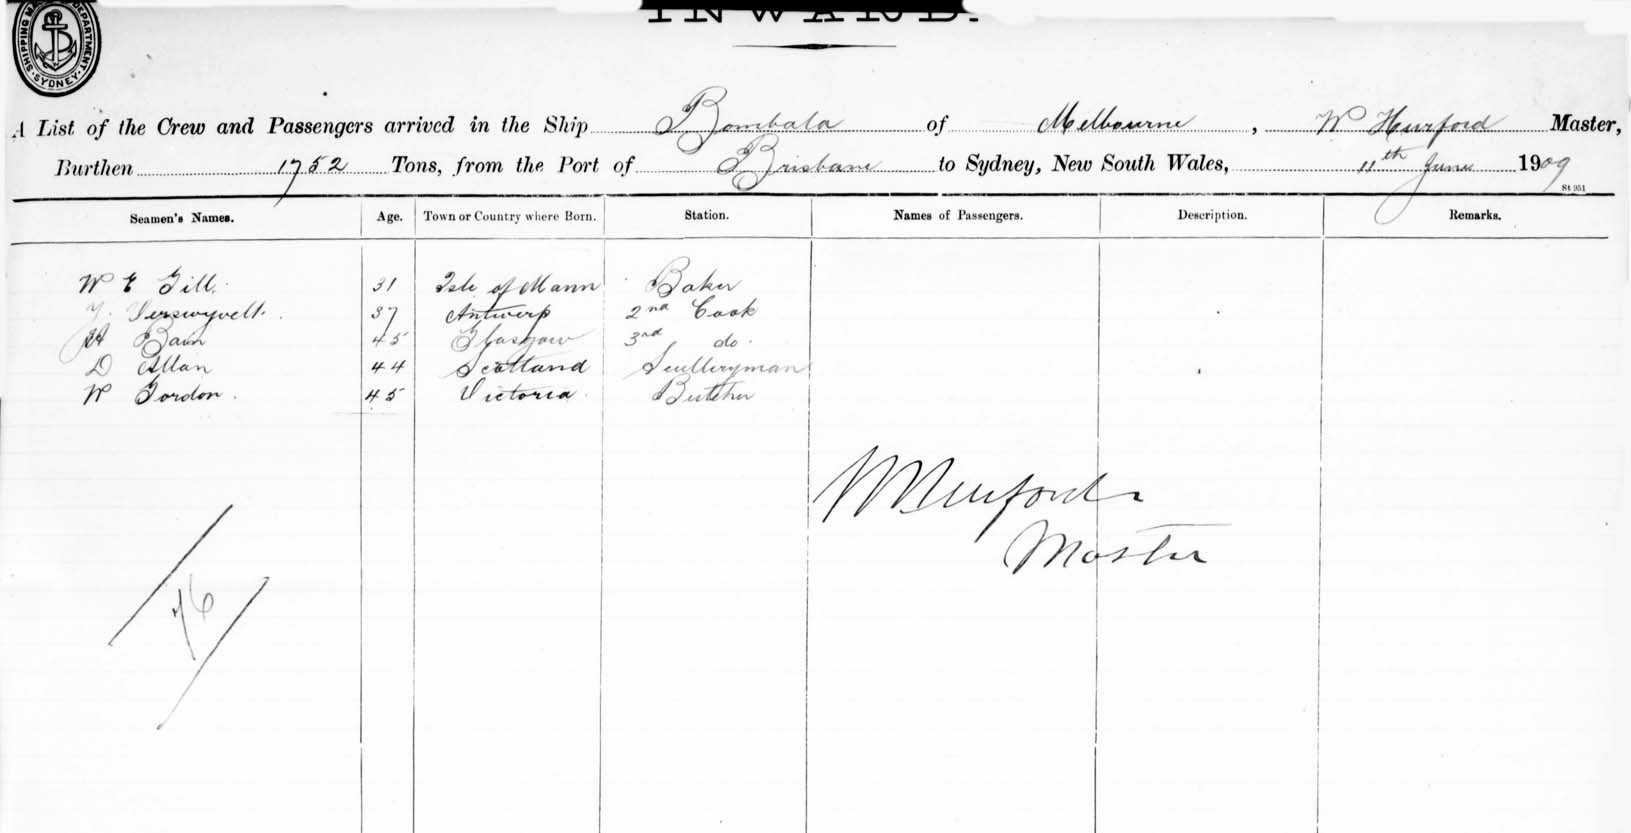 INWARD.
SHIPPING MA DEPARTMENT. SYDNEY.
A List of the Crew and Passengers arrived in the Ship Bombala of Melbourne, W Hurford Master,
Burthen 1752 Tons, from the Port of Brisbane to Sydney, New South Wales, 11th June 1909
St 951
Seamen's Names. Age. Town or Country where Born. Station. Names of Passengers. Description. Remarks.
W E Gill. 31 Isle of Mann Baker
Y. Verswyvelt. 37 Antwerp 2nd Cook
Bain 45 Glasgow 3rd do.
D Allan 44 Scotland Sculleryman
W Gordon. 45 Victoria Butcher
W Hurford
Master
76